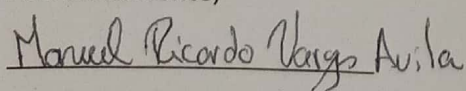 Manuel Ricardo Vargas Avila